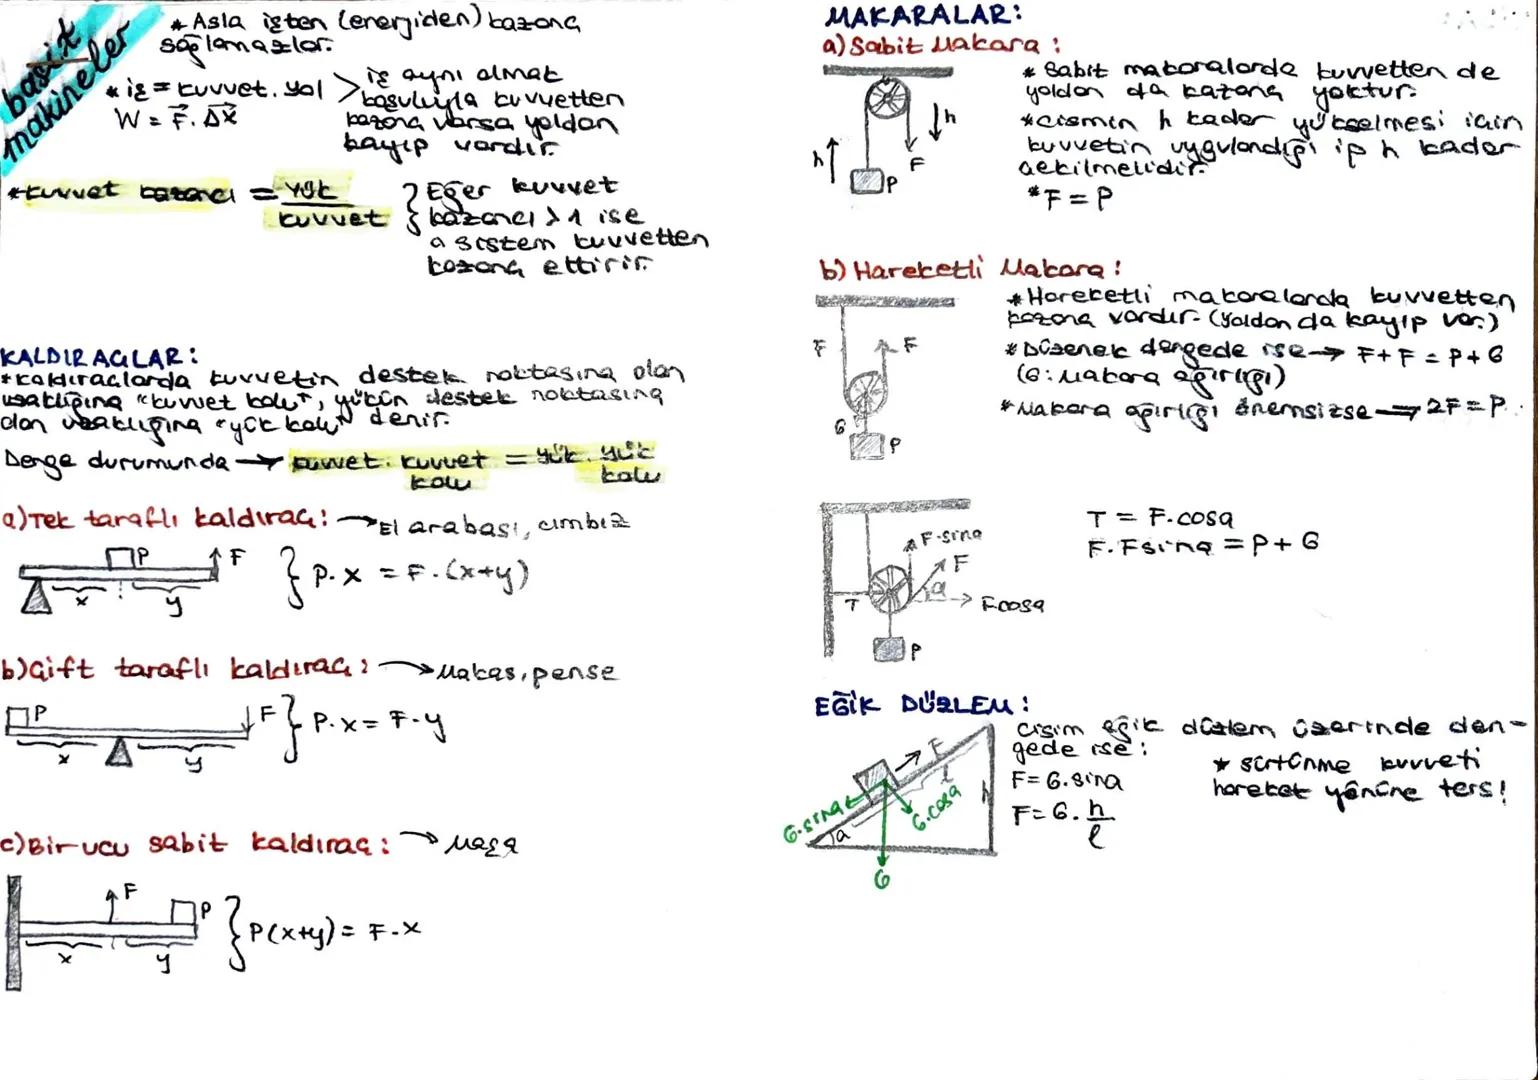 basit
makineler
* Asla işten (enerjiden) kazanç
sağlamazlar.
* iş = kuvvet. yol > iş aynı olmak
W = F. Δx
koşuluyla kuvvetten
kazanç varsa yoldan
kayıp vardır.
* kuvvet kazancı = yük
kuvvet
} Eğer kuvvet
kazancı > 1 ise
o sistem kuvvetten
kazanç ettirir.
KALDIRAÇLAR:
* kaldıraçlarda kuvvetin destek noktasına olan
uzaklığına "kuvvet kolu", yükün destek noktasına
olan uzaklığına "yük kolu" denir.
Denge durumunda → kuvvet. kuvvet = yük. yük
kolu kolu
a) Tek taraflı kaldıraç: → El arabası, cımbız
P F
x y
} P. x = F. (x+y)
b) Çift taraflı kaldıraç: → Makas, pense
P F
x y
} P. x = F. y
c) Bir ucu sabit kaldıraç: → Maşa
F P
x y
} P(x+y) = F. x
MAKARALAR:
a) Sabit Makara:
h P F h
* Sabit makaralarda kuvvetten de
yoldan da kazanç yoktur.
* cismin h kadar yükselmesi için
kuvvetin uygulandığı ip h kadar
çekilmelidir.
* F = P
b) Hareketli Makara:
F F
G P
* Hareketli makaralarda kuvvetten
kazanç vardır. (Yoldan da kayıp var.)
* Düzenek dengede ise → F + F = P + G
(G: Makara ağırlığı)
* Makara ağırlığı önemsizse → 2F = P
F.sina
F
a
T Fcosa
P
T = F.cosa
F. Fsina = P + G
EĞİK DÜZLEM:
F
l
h
G.sina
G.cosa
a
G
cisim eğik düzlem üzerinde den-
gede ise:
F = G.sina
F = G. h
l
* sürtünme kuvveti
hareket yönüne ters!